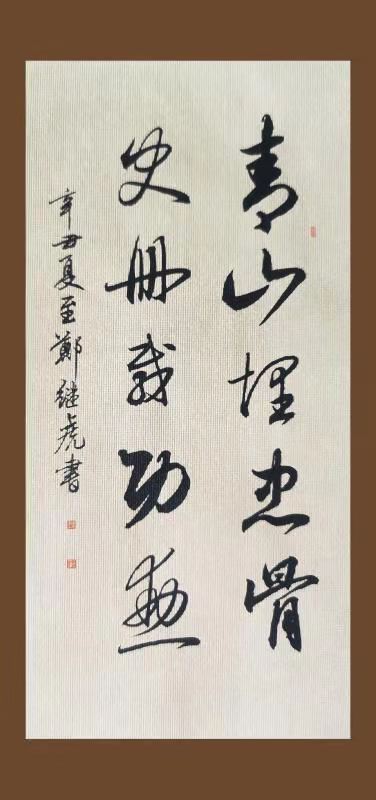 青山埋忠骨
史册载功勋
辛丑夏至郑继虎书